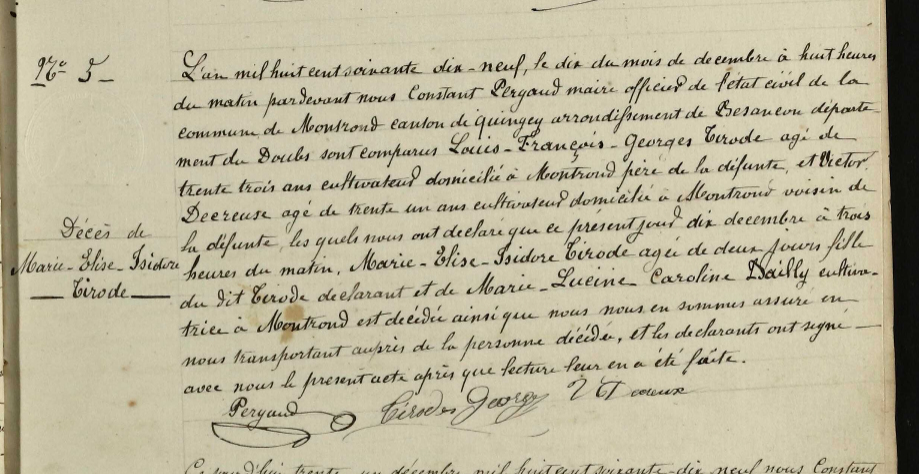 No 5
Décès de
Marie-Elise-Isidore
Tirode
L'an mil huit cent soixante dix-neuf, le dix du mois de decembre à huit heures
du matin pardevant nous Constant Pergaud maire officier de l'état civil de la
commune de Montrond canton de quingey arrondissement de Besançon départe-
ment du Doubs sont comparus Louis-François-Georges Tirode agé de
trente trois ans cultivateur domicilié à Montrond père de la défunte, et Victor
Decreuse agé de trente un ans cultivateur domicilié à Montrond voisin de
la défunte, les quels nous ont declaré que ce présent jour dix decembre à trois
heures du matin, Marie-Elise-Isidore Tirode agée de deux jours fille
du dit Tirode declarant et de Marie-Lucine Caroline Dailly cultiva-
trice à Montrond est décédée ainsi que nous nous en sommes assuré en
nous transportant auprès de la personne décédée, et les declarants ont signé
avec nous le present acte après que lecture leur en a été faite.
Pergaud Tirode Georges
Ce jourd'hui trente un décembre mil huit cent soixante-dix neuf nous Constant